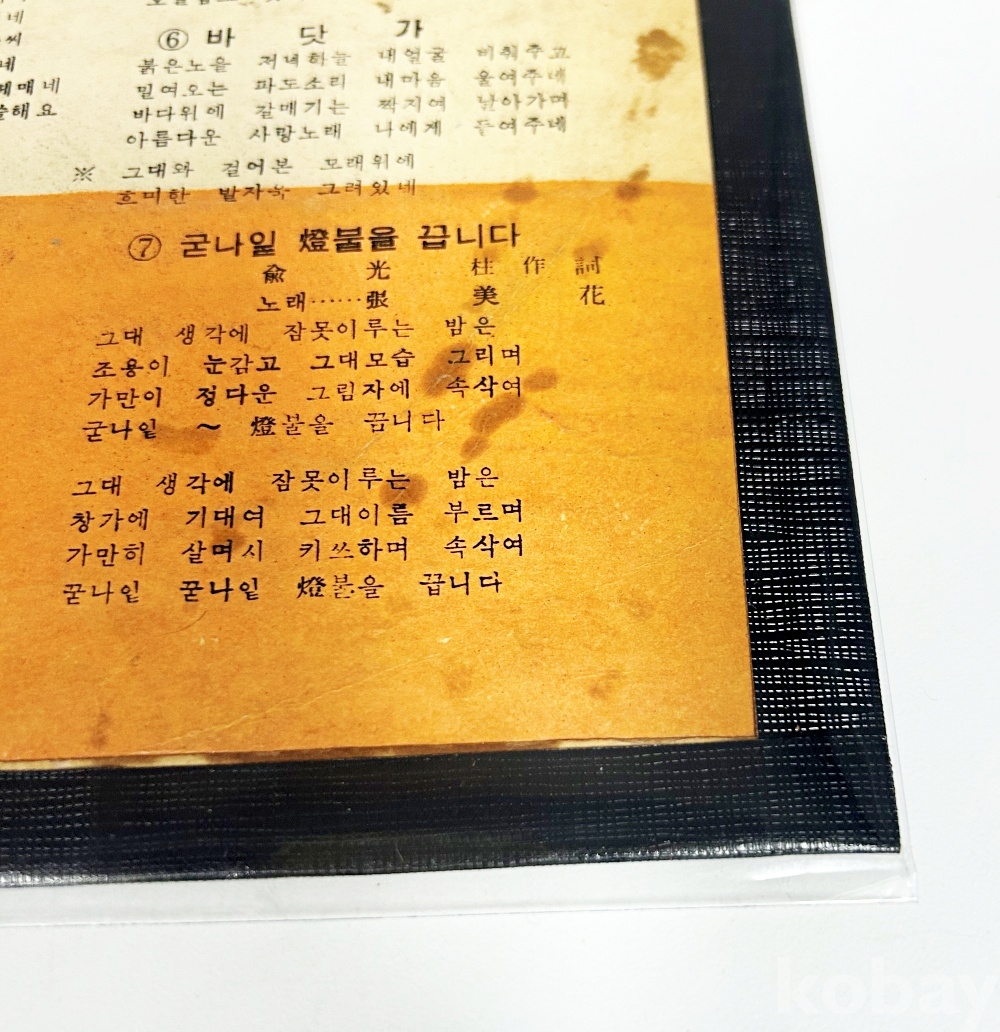 네
씨
네
헤매네
술해요
⑥ 바 닷 가
붉은노을 저녁하늘 내얼굴 비춰주고
밀여오는 파도소리 내마음 울여주네
바다위에 갈매기는 짝지여 날아가며
아름다운 사랑노래 나에게 들여주네
※ 그대와 걸어본 모래위에
흐미한 발자욱 그려있네
⑦ 굳나잍 燈불을 끕니다
兪 光 柱 作 詞
노래……張 美 花
그대 생각에 잠못이루는 밤은
조용이 눈감고 그대모습 그리며
가만이 정다운 그림자에 속삭여
굳나잍 ～ 燈불을 끕니다
그대 생각에 잠못이루는 밤은
창가에 기대여 그대이름 부르며
가만히 살며시 키쓰하며 속삭여
꾿나잍 꾿나잍 燈불을 끕니다
kobay